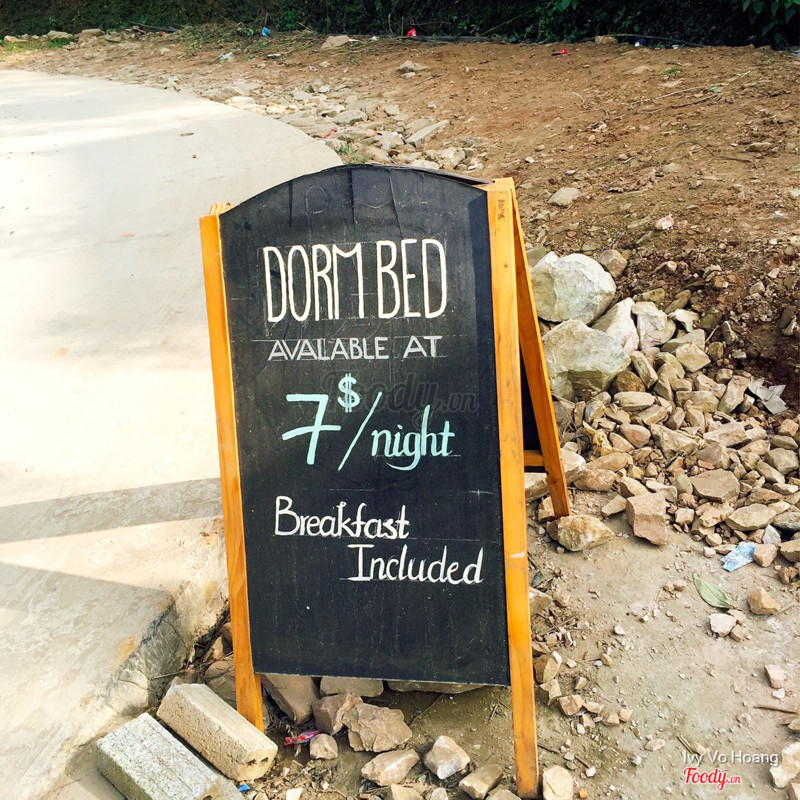 DORM BED
AVALABLE AT
7$/night
Breakfast
Included
Foody.vn
Ivy Vo Hoang
Foody.vn